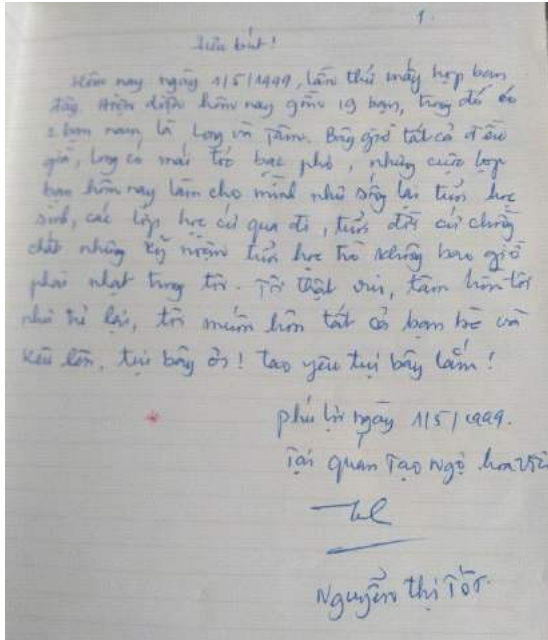 1.
Lưu bút!
Hôm nay ngày 1/5/1999, lần thứ mấy họp bạn
đây. Hiện diện hôm nay gồm 19 bạn, trong đó có
2 bạn nam, là Long và Tâm. Bây giờ tất cả đều
già, Long có mái tóc bạc phơ, những cuộc họp
bạn hôm nay làm cho mình như sống lại tuổi học
sinh, các lớp học cứ qua đi, tuổi đời cứ chồng
chất những kỷ niệm tuổi học trò không bao giờ
phai nhạt trong tôi. Tôi thật vui, tâm hồn tôi
như trẻ lại, tôi muốn hôn tất cả bạn bè và
kêu lên, tụi bây ơi! Tao yêu tụi bây lắm!
Phú Lợi ngày 1/5/1999.
Tại quán Tao Ngộ hoa viên
Nguyễn Thị Tốt.